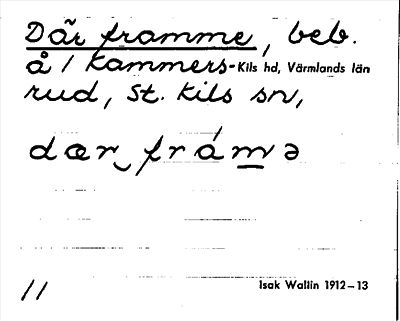 Där framme, beb.
å 1 Kammers- Kils hd, Värmlands län
rud, St. Kils sn,
dær‿frám̲ə
11
Isak Wallin 1912–13